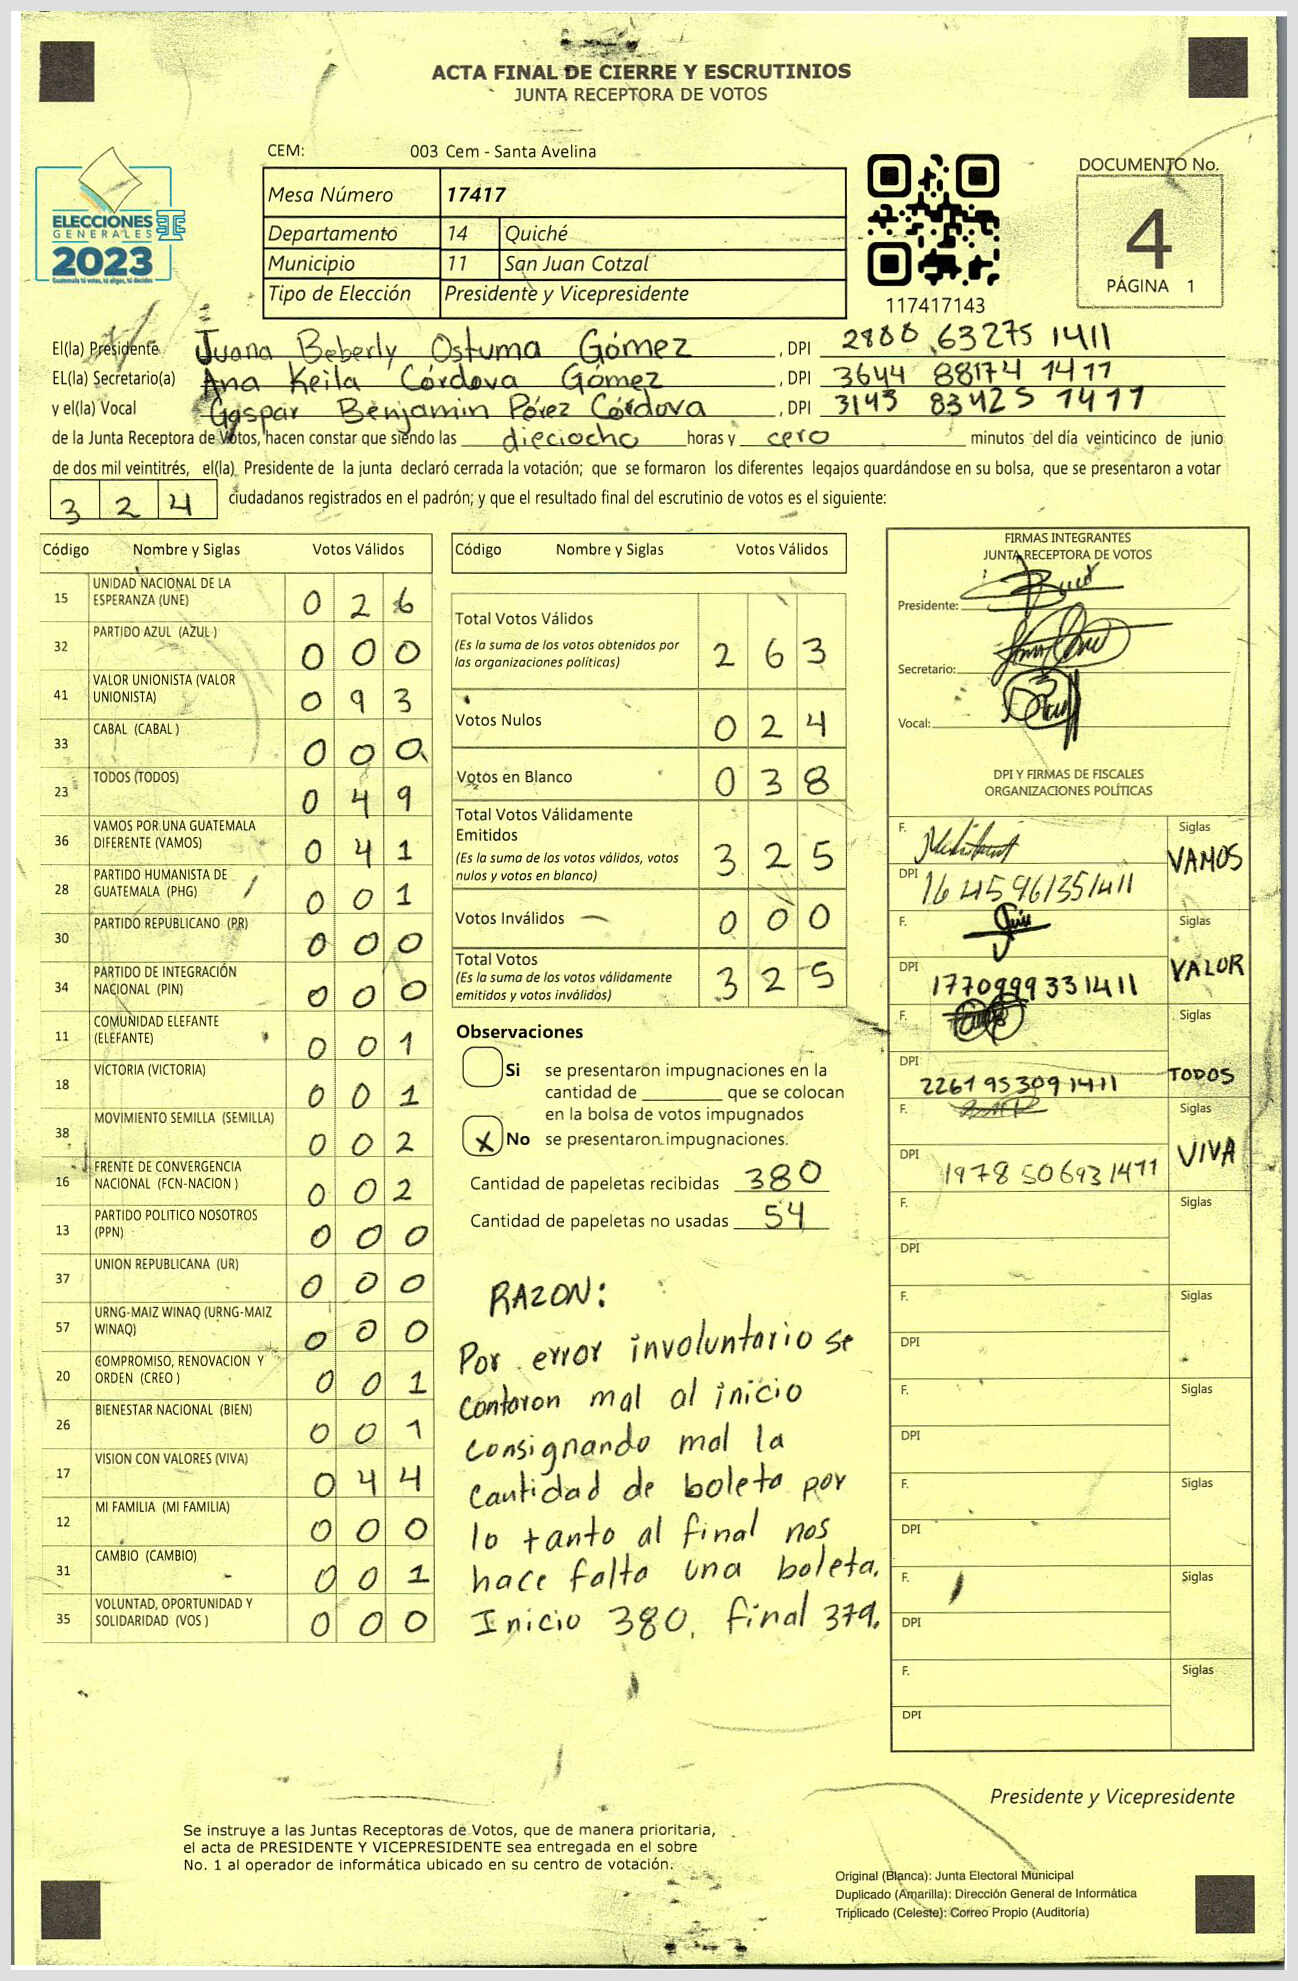 ACTA FINAL DE CIERRE Y ESCRUTINIOS
JUNTA RECEPTORA DE VOTOS
CEM: 003 Cem - Santa Avelina
Mesa Número 17417
Departamento 14 Quiché
Municipio 11 San Juan Cotzal
Tipo de Elección Presidente y Vicepresidente
ELECCIONES
GENERALES
2023
Guatemala tú votas, tú eliges, tú decides
117417143
DOCUMENTO No.
4
PÁGINA 1
El(la) Presidente Juana Beberly Ostuma Gómez , DPI 2880 63275 1411
EL(la) Secretario(a) Ana Keila Córdova Gómez , DPI 3644 88174 1411
y el(la) Vocal Gaspar Benjamin Pérez Córdova , DPI 3143 83425 1411
de la Junta Receptora de Votos, hacen constar que siendo las dieciocho horas y cero minutos del día veinticinco de junio
de dos mil veintitrés, el(la) Presidente de la junta declaró cerrada la votación; que se formaron los diferentes legajos guardándose en su bolsa, que se presentaron a votar
3 2 4 ciudadanos registrados en el padrón; y que el resultado final del escrutinio de votos es el siguiente:
Código Nombre y Siglas Votos Válidos
15 UNIDAD NACIONAL DE LA ESPERANZA (UNE) 0 2 6
32 PARTIDO AZUL (AZUL ) 0 0 0
41 VALOR UNIONISTA (VALOR UNIONISTA) 0 9 3
33 CABAL (CABAL ) 0 0 0
23 TODOS (TODOS) 0 4 9
36 VAMOS POR UNA GUATEMALA DIFERENTE (VAMOS) 0 4 1
28 PARTIDO HUMANISTA DE GUATEMALA (PHG) 0 0 1
30 PARTIDO REPUBLICANO (PR) 0 0 0
34 PARTIDO DE INTEGRACIÓN NACIONAL (PIN) 0 0 0
11 COMUNIDAD ELEFANTE (ELEFANTE) 0 0 1
18 VICTORIA (VICTORIA) 0 0 1
38 MOVIMIENTO SEMILLA (SEMILLA) 0 0 2
16 FRENTE DE CONVERGENCIA NACIONAL (FCN-NACION ) 0 0 2
13 PARTIDO POLITICO NOSOTROS (PPN) 0 0 0
37 UNION REPUBLICANA (UR) 0 0 0
57 URNG-MAIZ WINAQ (URNG-MAIZ WINAQ) 0 0 0
20 COMPROMISO, RENOVACION Y ORDEN (CREO ) 0 0 1
26 BIENESTAR NACIONAL (BIEN) 0 0 1
17 VISION CON VALORES (VIVA) 0 4 4
12 MI FAMILIA (MI FAMILIA) 0 0 0
31 CAMBIO (CAMBIO) 0 0 1
35 VOLUNTAD, OPORTUNIDAD Y SOLIDARIDAD (VOS ) 0 0 0
Código Nombre y Siglas Votos Válidos
Total Votos Válidos 2 6 3
(Es la suma de los votos obtenidos por
las organizaciones políticas)
Votos Nulos 0 2 4
Votos en Blanco 0 3 8
Total Votos Válidamente
Emitidos 3 2 5
(Es la suma de los votos válidos, votos
nulos y votos en blanco)
Votos Inválidos 0 0 0
Total Votos 3 2 5
(Es la suma de los votos válidamente
emitidos y votos inválidos)
Observaciones
Si se presentaron impugnaciones en la
cantidad de ________ que se colocan
en la bolsa de votos impugnados
X No se presentaron impugnaciones.
Cantidad de papeletas recibidas 380
Cantidad de papeletas no usadas 54
RAZON:
Por error involuntario se
contaron mal al inicio
consignando mal la
cantidad de boleta por
lo tanto al final nos
hace falta una boleta.
Inicio 380, final 379.
FIRMAS INTEGRANTES
JUNTA RECEPTORA DE VOTOS
Presidente:
Secretario:
Vocal:
DPI Y FIRMAS DE FISCALES
ORGANIZACIONES POLÍTICAS
F. Siglas
VAMOS
DPI 1645961351411
F. Siglas
VALOR
DPI 1770999331411
F. Siglas
TODOS
DPI 2261953091411
F. Siglas
VIVA
DPI 1978506931411
F. Siglas
DPI
F. Siglas
DPI
F. Siglas
DPI
F. Siglas
DPI
F. Siglas
DPI
F. Siglas
DPI
Presidente y Vicepresidente
Se instruye a las Juntas Receptoras de Votos, que de manera prioritaria,
el acta de PRESIDENTE Y VICEPRESIDENTE sea entregada en el sobre
No. 1 al operador de informática ubicado en su centro de votación.
Original (Blanca): Junta Electoral Municipal
Duplicado (Amarilla): Dirección General de Informática
Triplicado (Celeste): Correo Propio (Auditoría)